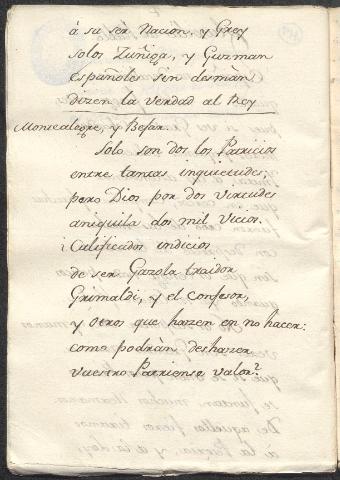 à su ser Nacion, y Grey
solos Zuñiga, y Guzman
españoles sin desmàn
dizen la verdad al Rey
Montealegre, y Bejar.
Solo son dos los Patricios
entre tantas inquietudes,
pero Dios por dos virtudes
aniquila dos mil vicios.
i Calificados indicios
de ser Gazola traidor
Grimaldi, y el confesor,
y otros que hazen en no hacer:
como podràn deshazer
vuestro Patriense valor?